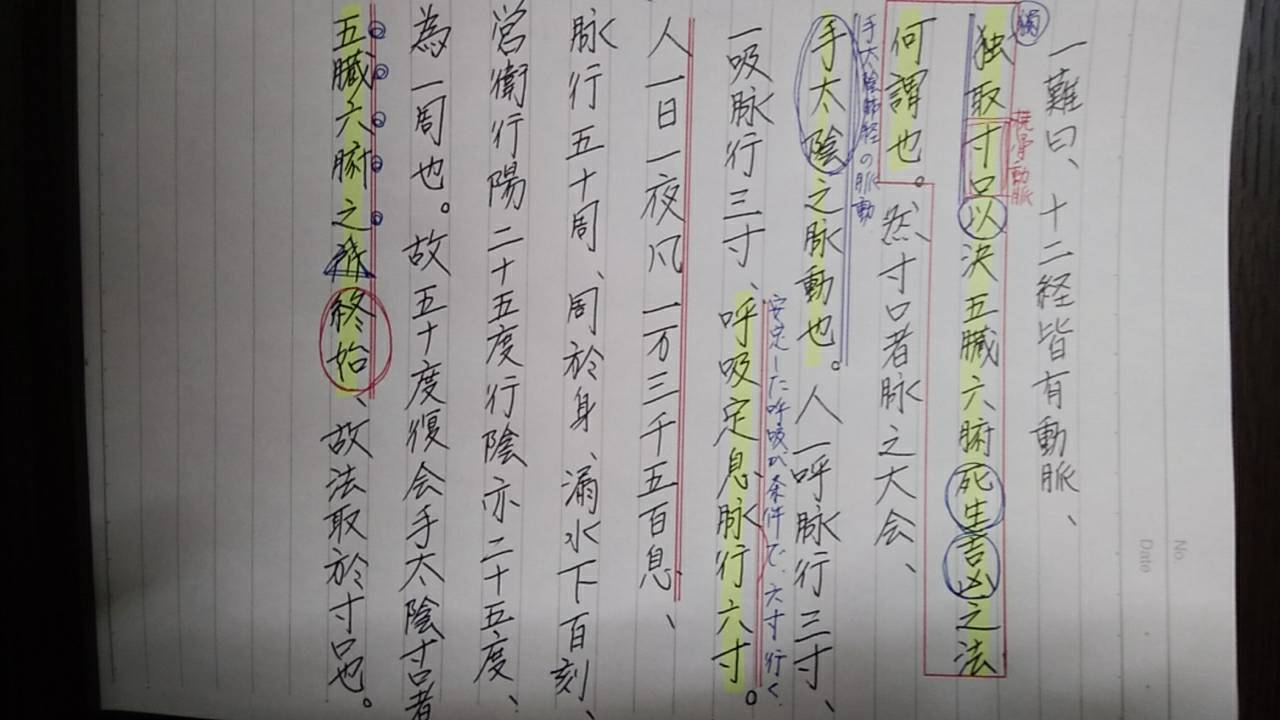 一難曰、十二経皆有動脈、
獨
独取寸口以決五臓六腑死生吉凶之法
橈骨動脈
何謂也。然寸口者脉之大会、
手太陰肺経の脈動
手太陰之脉動也。人一呼脉行三寸、
安定した呼吸が条件で、六寸行く
一吸脉行三寸、呼吸定息脉行六寸。
人一日一夜凡一万三千五百息、
脉行五十周、周於身、漏水下百刻、
営衛行陽二十五度行陰亦二十五度、
為一周也。故五十度復会手太陰寸口者
五臓六腑之終始、故法取於寸口也。
No.
Date